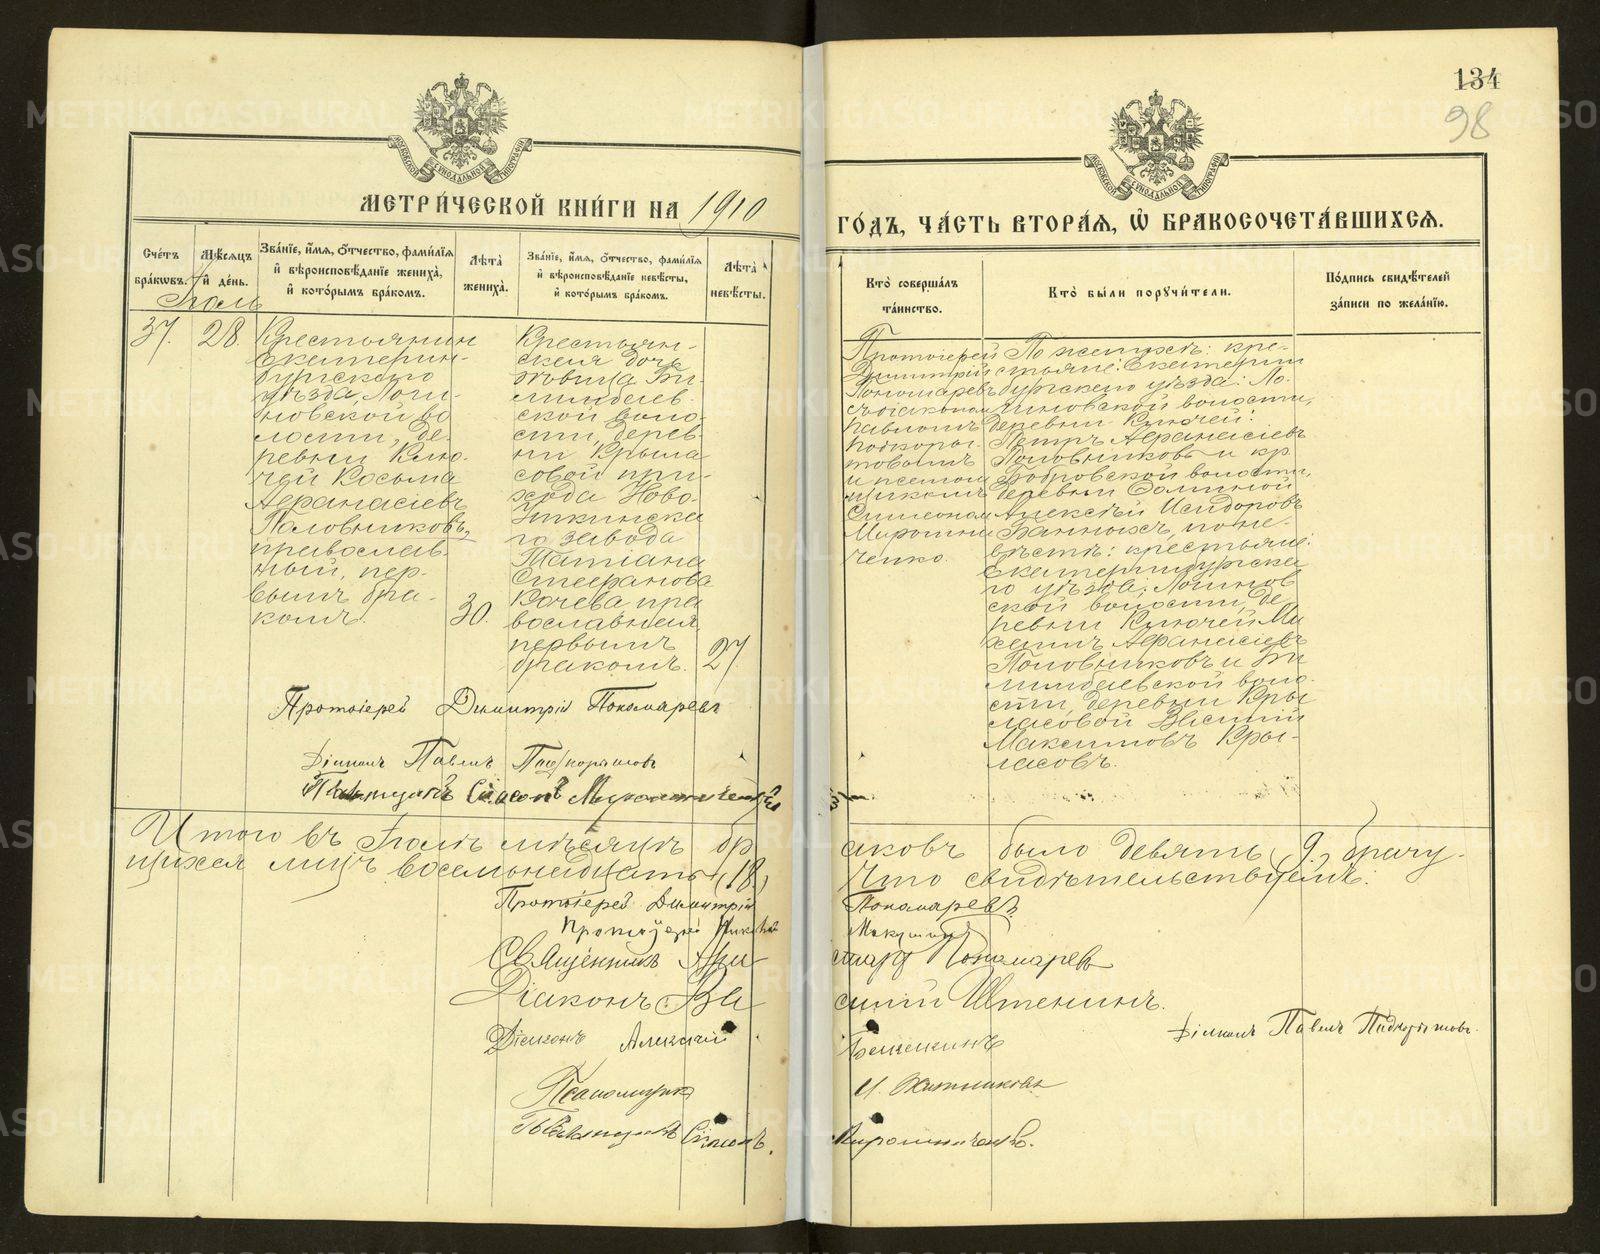 134
98
МЕТРИ́ЧЕСКОЙ КНИ́ГИ НА 1910
ГО́ДЪ, ЧА́СТЬ ВТОРА́Я, Ѡ БРАКОСОЧЕТА́ВШИХСЯ.
Сче́тъ бра́кѡвъ.
Мѣ́сяцъ и҆ де́нь.
Зва́нїе, и҆́мя, ѻ҆́тчество, фами́лїя и҆ вѣроисповѣ́данїе жениха̀, и҆ кото́рымъ бра́комъ.
Лѣ́та жениха̀.
Зва́нїе, и҆́мя, ѻ҆́тчество, фами́лїя и҆ вѣроисповѣ́данїе невѣ́сты, и҆ кото́рымъ бра́комъ.
Лѣ́та невѣ́сты.
Кто̀ соверша́лъ та́инство.
Кто̀ бы́ли порꙋчи́тели.
По́дпись свидѣ́телей за́писи по жела́нїю.
Іюль
37.
28.
Крестьянинъ
Екатерин-
бургскаго
уѣзда, Логи-
новской во
лости, де-
ревни Клю-
чей Косьма
Аѳанасіевъ
Половниковъ,
православ-
ный, пер-
вымъ бра-
комъ.
30.
Крестьян-
ская дочь
дѣвица Би-
лимбаев-
ской воло-
сти, дерев-
ни Крыла
совой при-
хода Ново-
Уткинска
го завода
Татіана
Стефанова
Кочева пра
вославная,
первымъ
бракомъ.
27
Протоіерей
Димитрій
Пономаревъ
съ діакономъ
Павломъ
Подкоры-
товымъ
и псалом
щикомъ
Симеономъ
Мирошни
ченко.
По женихѣ: кре-
стьяне: Екатерин
бургскаго уѣзда: Ло-
гиновской волости,
деревни Ключей:
Петръ Аѳанасіевъ
Половниковъ и кр.
Бобровской волости,
деревни Фоминой
Алексѣй Исидоровъ
Банныхъ, по не-
вѣстѣ: крестьяне:
Екатеринбургска
го уѣзда, Логинов
ской волости, де
ревни Ключей Ми
хаилъ Аѳанасіевъ
Половниковъ и Би
лимбаевской воло-
сти, деревни Кры
ласовой Василій
Максимовъ Кры-
ласовъ.
Протоіерей Димитрій Пономаревъ
Діаконъ Павелъ Подкорытовъ
Псаломщикъ Симеонъ
Итого въ Іюлѣ мѣсяцѣ бр
аковъ было девять (9.) брачу-
щихся лицъ восемьнадцать (18.)
Что свидѣтельствуемъ:
Протоіерей Димитрій
Пономаревъ
Протоіерей
Священникъ
Пономаревъ
Діаконъ Васи
лій Штенинъ.
Діаконъ Алексій
Діаконъ Павелъ Подкорытовъ.
Псаломщикъ
Псаломщикъ Симеонъ
Мирошниченко.